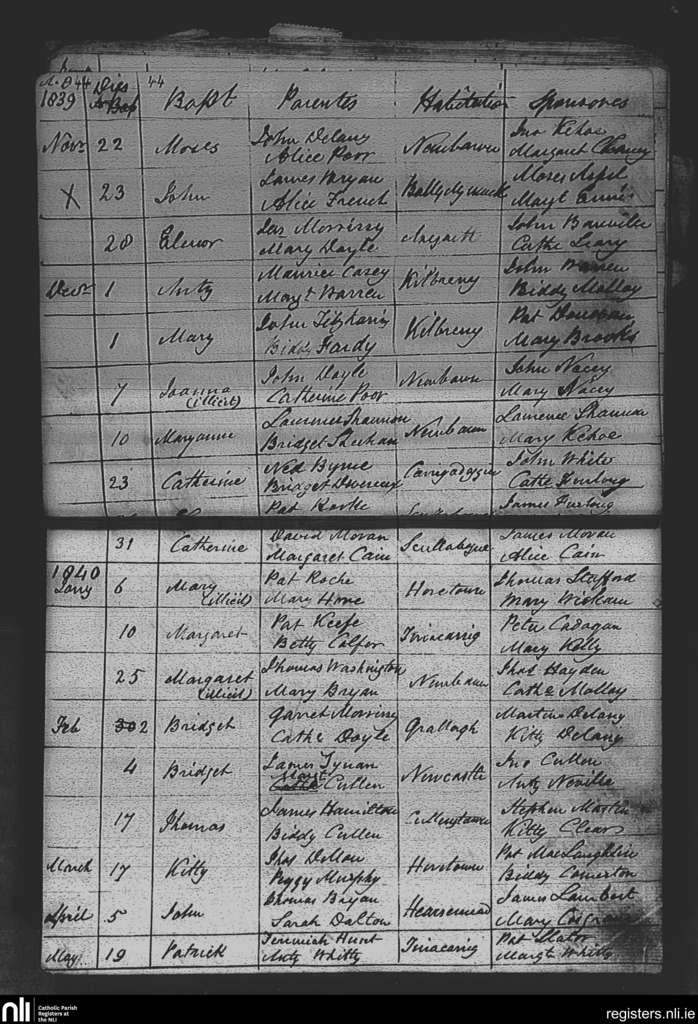 A. 844 Dies 44
1839 Bap Bapt Parentes Habitation Sponsores
Novr 22 Moses John Delany Newbawn Jno Kehoe
Alice Poor Margaret
X 23 John James Bryan Moses
Alice French Mayt
28 Elenor Jas Morrissy John Banville
Mary Doyle Cathe Leary
Decr 1 Anty Maurice Casey Kilbreny John Barren
Margt Barren Biddy Molloy
1 Mary John Fitzharris Kilbreny Pat Donovan
Biddy Hardy Mary Brooks
7 Joanna John Doyle Newbawn John Nacey
(illicit) Catherine Poor Mary Nacey
10 Maryanne Laurence Shannon Newbawn Laurence Shannon
Bridget Sheehan Mary Kehoe
23 Catherine Ned Byrne John White
Bridget Devereux Cathe Furlong
Pat Rorke James Furlong
31 Catherine David Moran Scullabogue James Moran
Margaret Cain Alice Cain
1840
Jany 6 Mary Pat Roche Horetown Thomas Stafford
(illicit) Mary Howe Mary Wickam
10 Margaret Pat Keefe Tinacarrig Peter Cadagan
Betty Colfer Mary Kelly
25 Margaret Thomas Washington Newbawn Thos Hayden
(illicit) Mary Bryan Cathe Molloy
Feb 2 Bridget Garret Morrissy Grallogh Martin Delany
Cathe Doyle Kitty Delany
4 Bridget James Tynan Newcastle Jno Cullen
Margt Cullen Anty Neville
17 Thomas James Hamilton Cullenstown Stephen Martin
Biddy Cullen Kitty Cleary
March 17 Kitty Thos Horetown Pat MacLaughlin
Peggy Murphy Biddy Comerton
April 5 John Thomas Bryan James Lambert
Sarah Dalton Mary Cosgrave
May 19 Patrick Jeremiah Hunt Tinacarrig Pat Slator
Anty Whitty Margt Whitty
nli Catholic Parish
Registers at
the NLI
registers.nli.ie